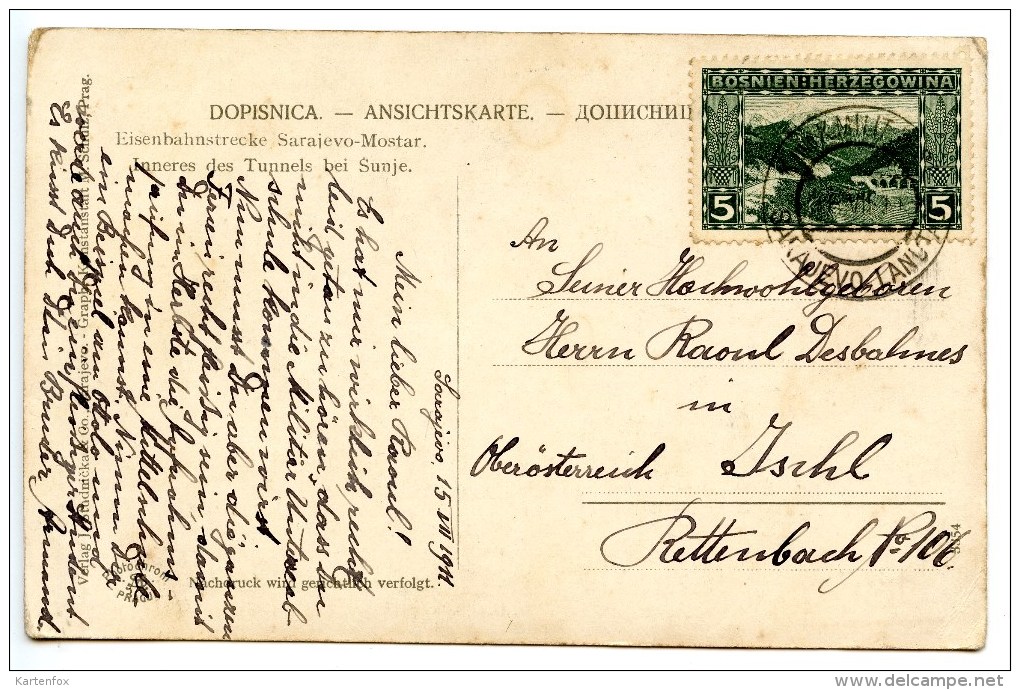 DOPISNICA. — ANSICHTSKARTE. — ДОПИСНИЦ
Eisenbahnstrecke Sarajevo-Mostar.
Inneres des Tunnels bei Sunje.
BOSNIEN-HERZEGOWINA
5 5
K.u.K. MILIT.
SARAJEVO
An
Seiner Hochwohlgeboren
Herrn Raoul Desbalmes
in
Oberösterreich Ischl
Rettenbach No 106
Sarajevo, 15 VII 1911
Mein lieber Raoul!
Es hat mir wirklich recht
leid getan zu hören, dass Du
nicht in die Militär Unterreal-
schule kommen wirst.
Nun musst Du aber die ganzen
Ferien recht fleissig sein damit
Du im Herbste die
prüfung in eine Mittelschule
machen kannst. Nimm Dir
ein Beispiel an Otolo und
Es küsst Dich Dein Bruder Armand.
Nachdruck wird gerichtlich verfolgt.
Verlag J. Studnička & Co. Sarajevo. - Graph. Kunstanstalt Prag.
Fotochrom
PRAG
Kartenfox
www.delcampe.net